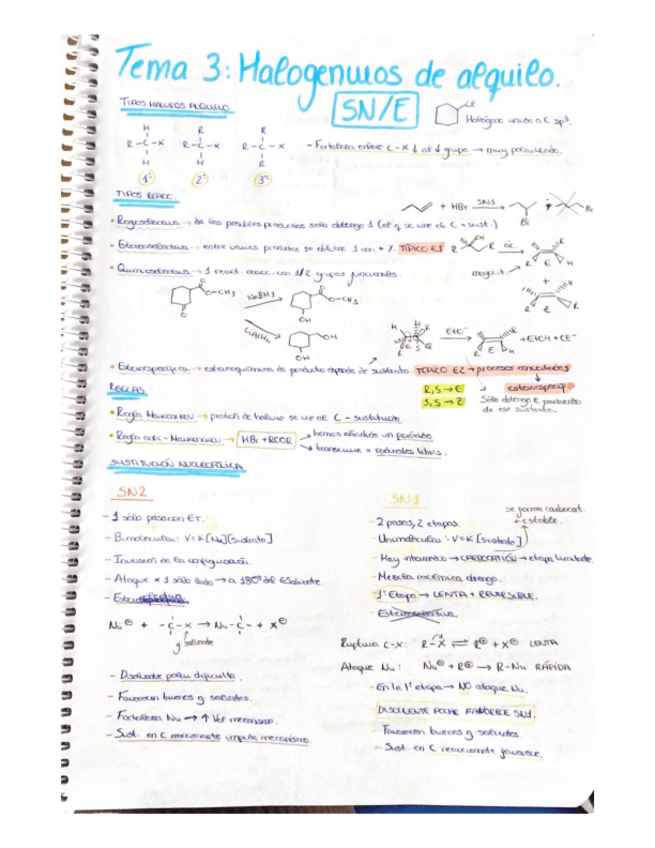 Tema 3: Halogenuros de alquilo.
SN/E
TIPOS HALUROS ALQUILO
Halógeno unido a C sp³.
R-C-X R-C-X R-C-X
1º 2º 3º
- Fortaleza enlace C-X ↓ al ↓ grupo → muy polarizado.
TIPOS REACC.
+ HBr SN1
• Regioselectiva → de los posibles productos solo obtengo 1 (el q se une al C + sust.)
• Estereoselectiva → entre varios productos se obtiene 1 con + %. TÍPICO E1
• Quimioselectiva → 1 react. reacc. con 1/2 grupos funcionales.
NaBH4
LiAlH4
EtO⁻
+ EtOH + Cl⁻
• Estereoespecífica → estereoquímica de producto depende de sustrato. TÍPICO E2 → procesos concertados
R,S → E
S,S → Z
estereoespecif.
Sólo obtengo E partiendo
de ese sustrato.
REGLAS
• Regla Markovnikov → protón de haluro se une al C - sustituido
• Regla anti-Markovnikov → HBr + ROOR
hemos añadido un peróxido
transcurre x radicales libres.
SUSTITUCIÓN NUCLEOFÍLICA
SN2
- 1 sólo paso con ET.
- Bimolecular: V=K[Nu][sustrato]
- Inversión de la configuración.
- Ataque x 1 sólo lado → a 180º del G saliente.
Nu⊖ + -C-X → Nu-C- + X⊖
g saliente
- Disolvente polar dificulta.
- Favorecen buenos g. salientes.
- Fortaleza Nu → ↑ Vel mecanismo.
- Sust. en C reaccionante impide mecanismo.
SN1
se forma carbocat.
+ estable.
- 2 pasos, 2 etapas.
- Unimolecular: V=K[sustrato]
- Hay intermedio → CARBOCATIÓN → etapa limitante.
- Mezcla racémica obtengo.
- 1ª Etapa → LENTA + REVERSIBLE.
- Estereoselectiva
Ruptura C-X: R-X ⇌ R⊕ + X⊖ LENTA
Ataque Nu: Nu⊖ + R⊕ → R-Nu RÁPIDA
- En la 1ª etapa → NO ataque Nu.
- DISOLVENTE POLAR FAVORECE SN1.
- Favorecen buenos g. salientes
- Sust. en C reaccionante favorece.